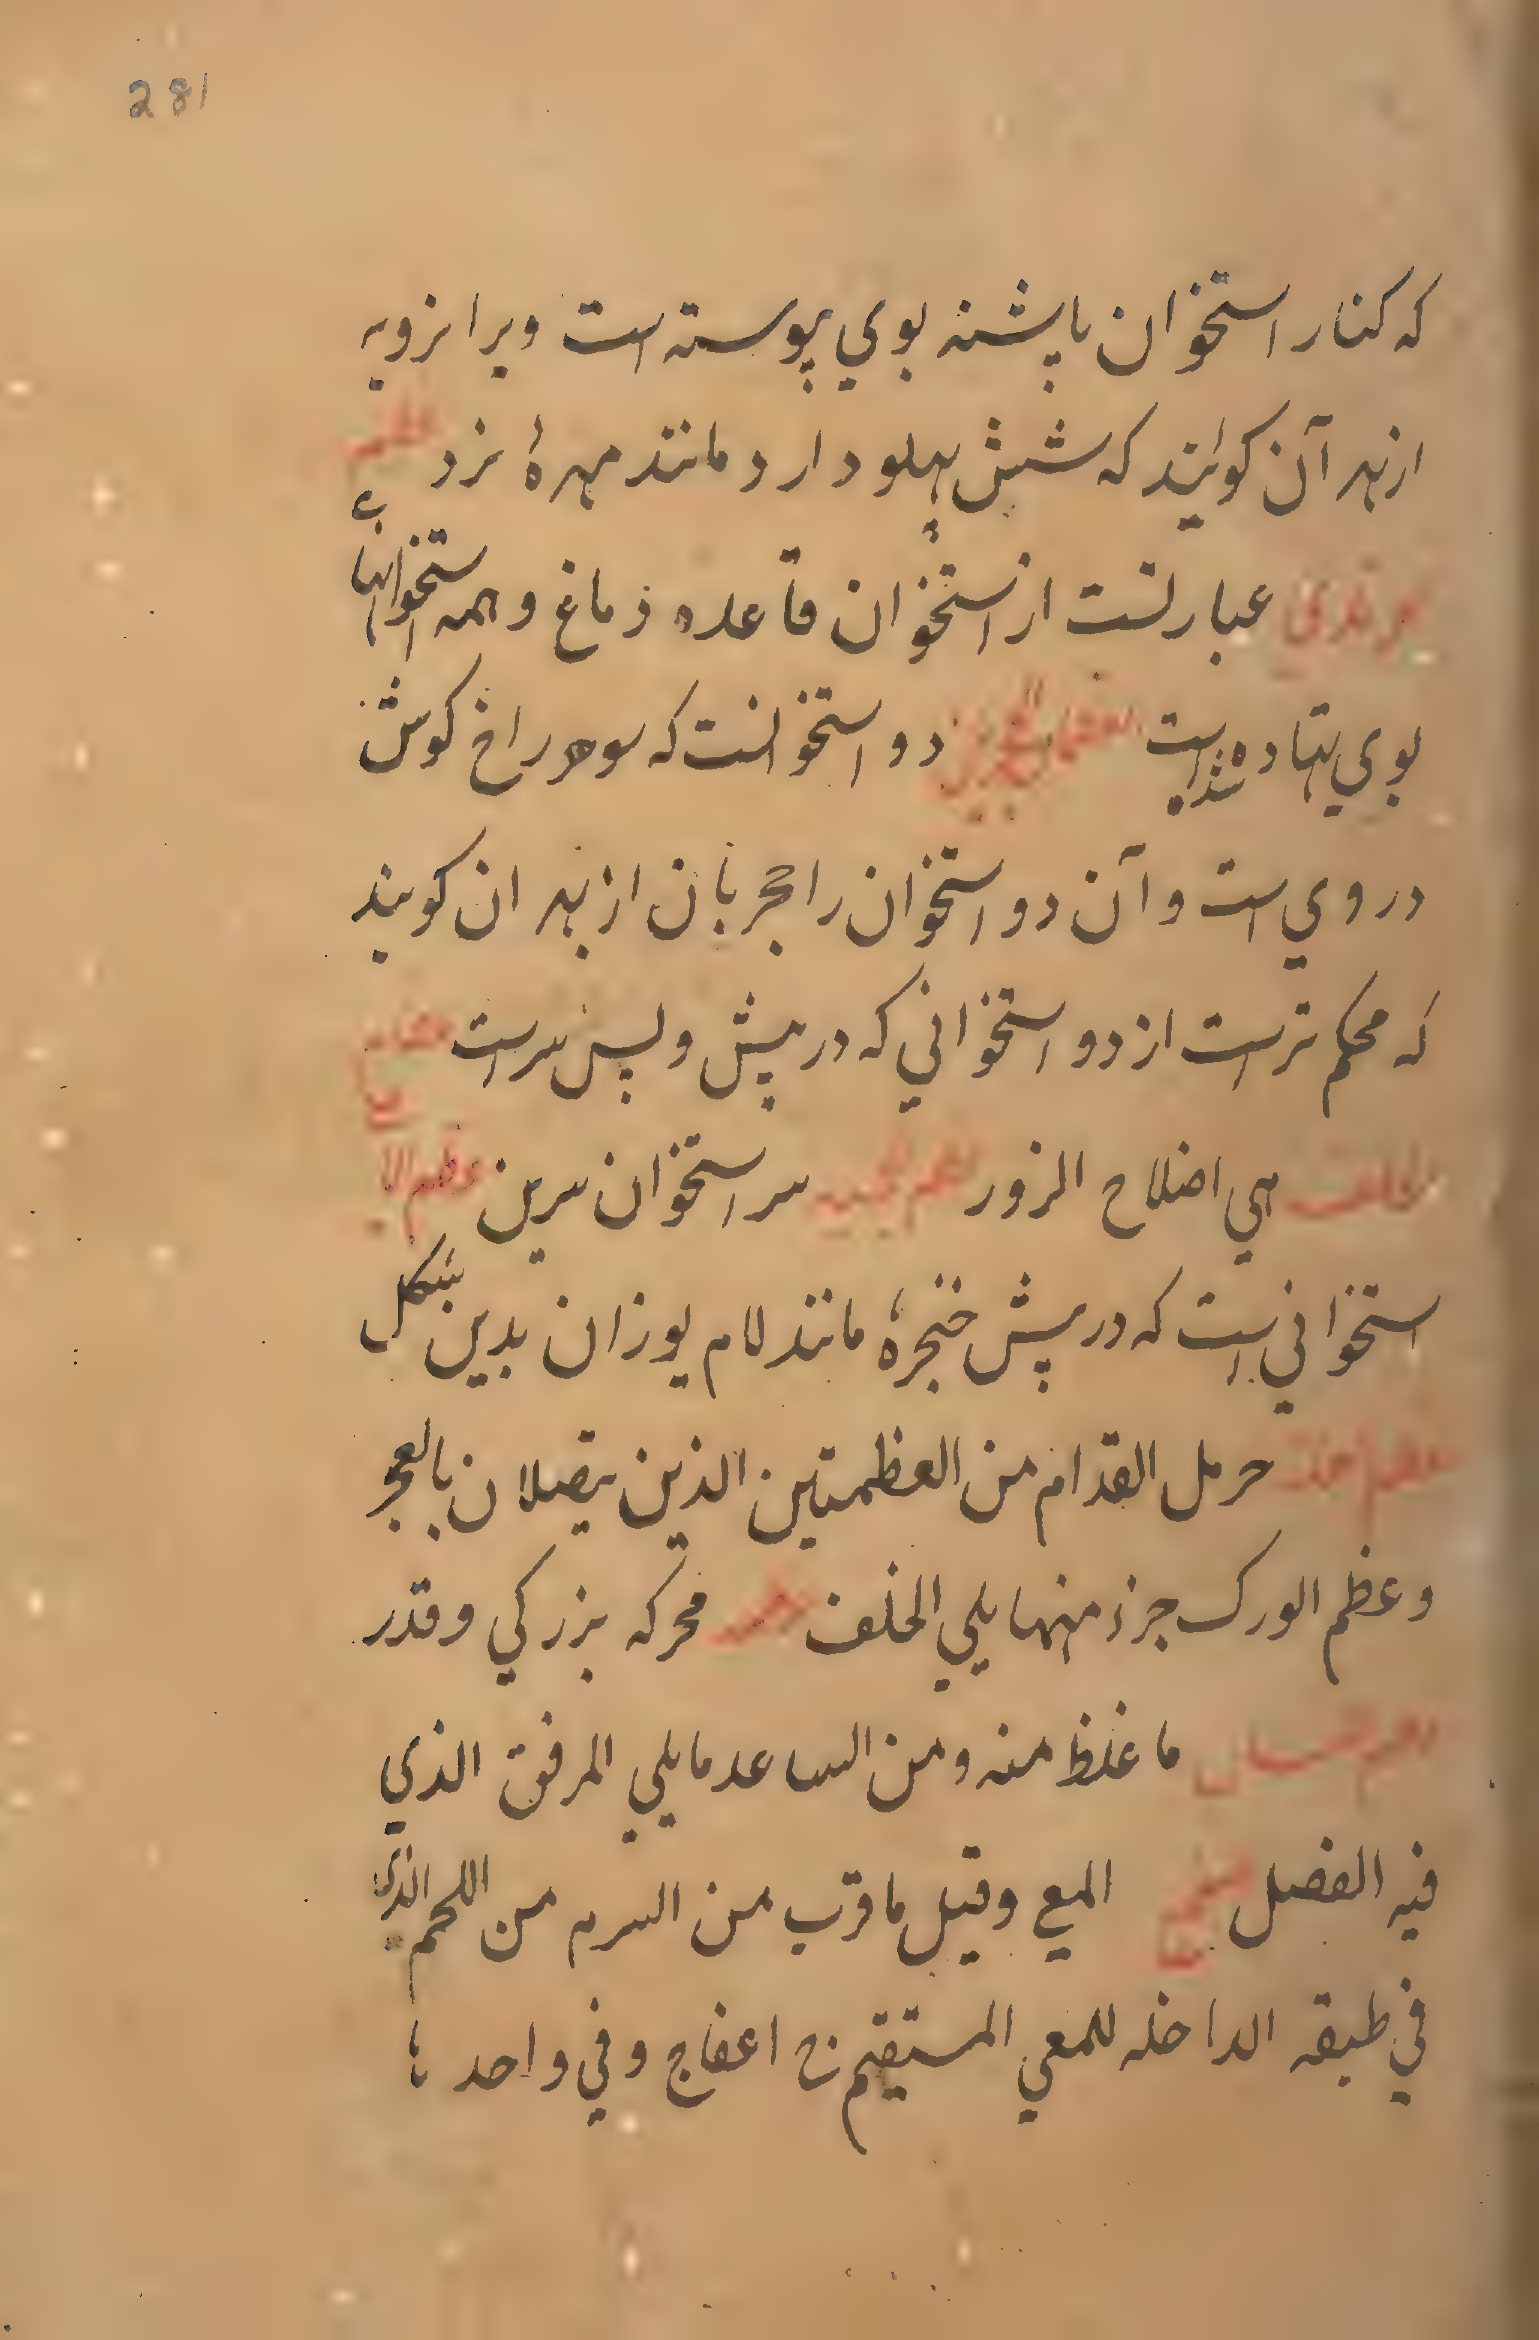 281
که کنار استخوان پاشنه بوي پیوسته است ویرا نردیه
از بهر آن کوئیند که شش پهلو دارد مانند مهرهٔ نرد عظم
عبارتست از استخوان قاعده دماغ و همه استخوانها
بوي نهاده شده است دو استخوانست که سوراخ کوش
در وي است و آن دو استخوان را حجریان از بهر ان کویند
که محکم ترست از دو استخواني که در پیش و پس سر است عظم
هي اضلاح الزور سر استخوان سرین عظم
استخواني است که در پیش خنجرهٔ مانند لام یوزان بدین شکل
القدام من العظمتین الذین یتصلان بالعجز
و عظم الورک جزء منها یلي الخلف محرکه بزرکي و قدر
ما غلظ منه و من الساعد ما یلي المرفق الذي
فیه الفصل المعي و قیل ما قرب من السرم من اللحم الذي
في طبقه الداخله للمعي المستقیم ج اعفاج و في واحد